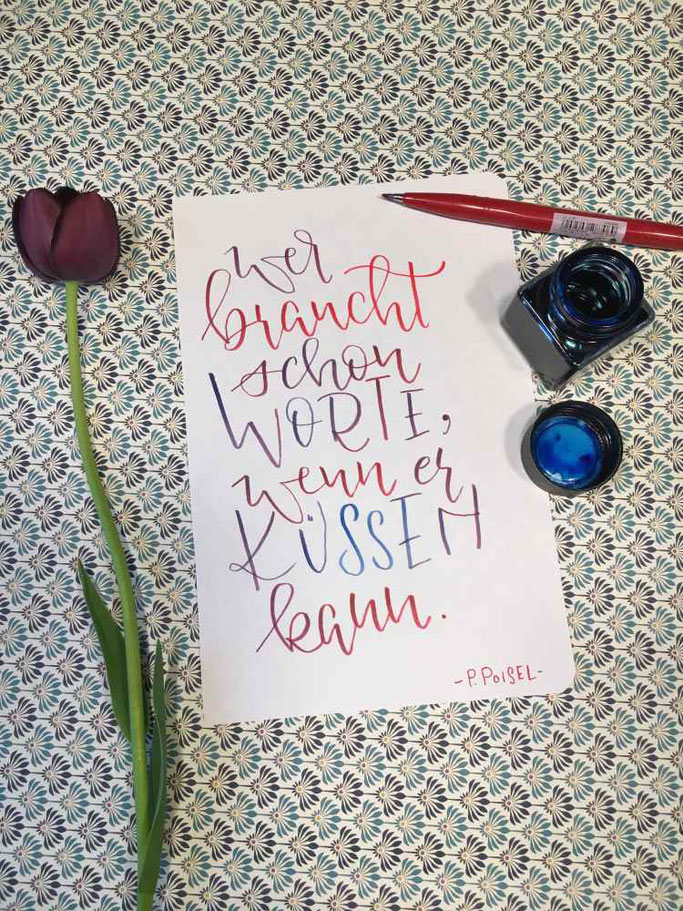 wer
braucht
schon
WORTE,
wenn er
KÜSSEN
kann.
-P. POISEL-